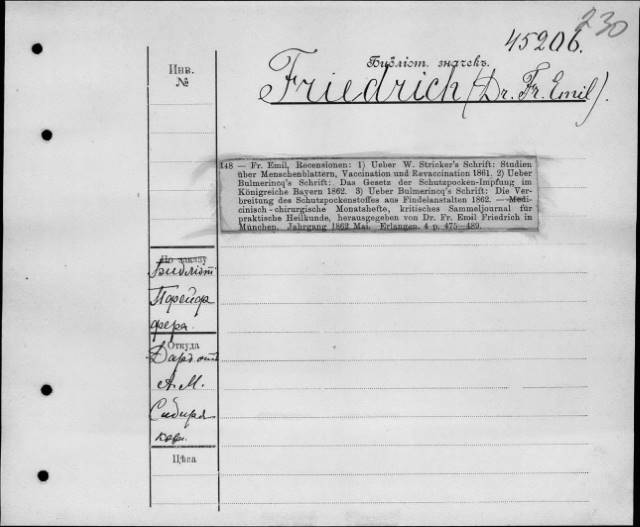 230
45206.
Библіот. значекъ.
Friedrich (Dr. Fr. Emil).
Инв.
№
148 — Fr. Emil, Recensionen: 1) Ueber W. Stricker's Schrift: Studien
über Menschenblattern, Vaccination und Revaccination 1861. 2) Ueber
Bulmerincq's Schrift: Das Gesetz der Schutzpocken-Impfung im
Königreiche Bayern 1862. 3) Ueber Bulmerincq's Schrift: Die Ver-
breitung des Schutzpockenstoffes aus Findelanstalten 1862. — Medi-
cinisch-chirurgische Monatshefte, kritisches Sammeljournal für
praktische Heilkunde, herausgegeben von Dr. Fr. Emil Friedrich in
München. Jahrgang 1862 Mai. Erlangen. 4 p. 475—489.
По заказу
Библіот
Пфейф
фера
Откуда
Даръ отъ
А. М.
Цѣна